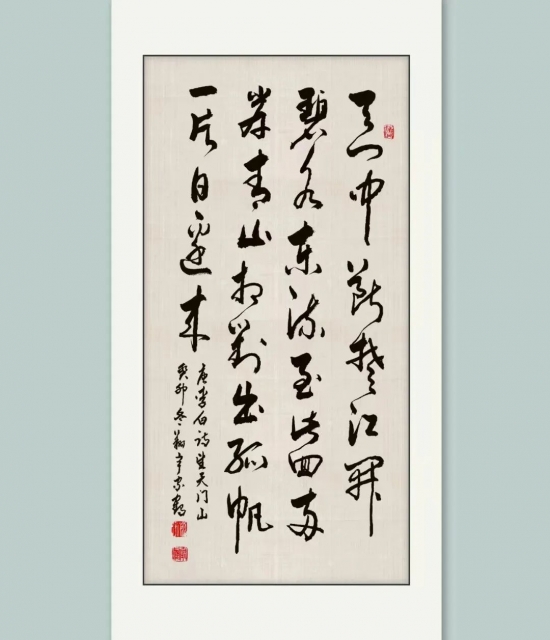 天门中断楚江開
碧水東流至此回两
岸青山相對出孤帆
一片日邊来
唐李白诗望天门山
癸卯冬